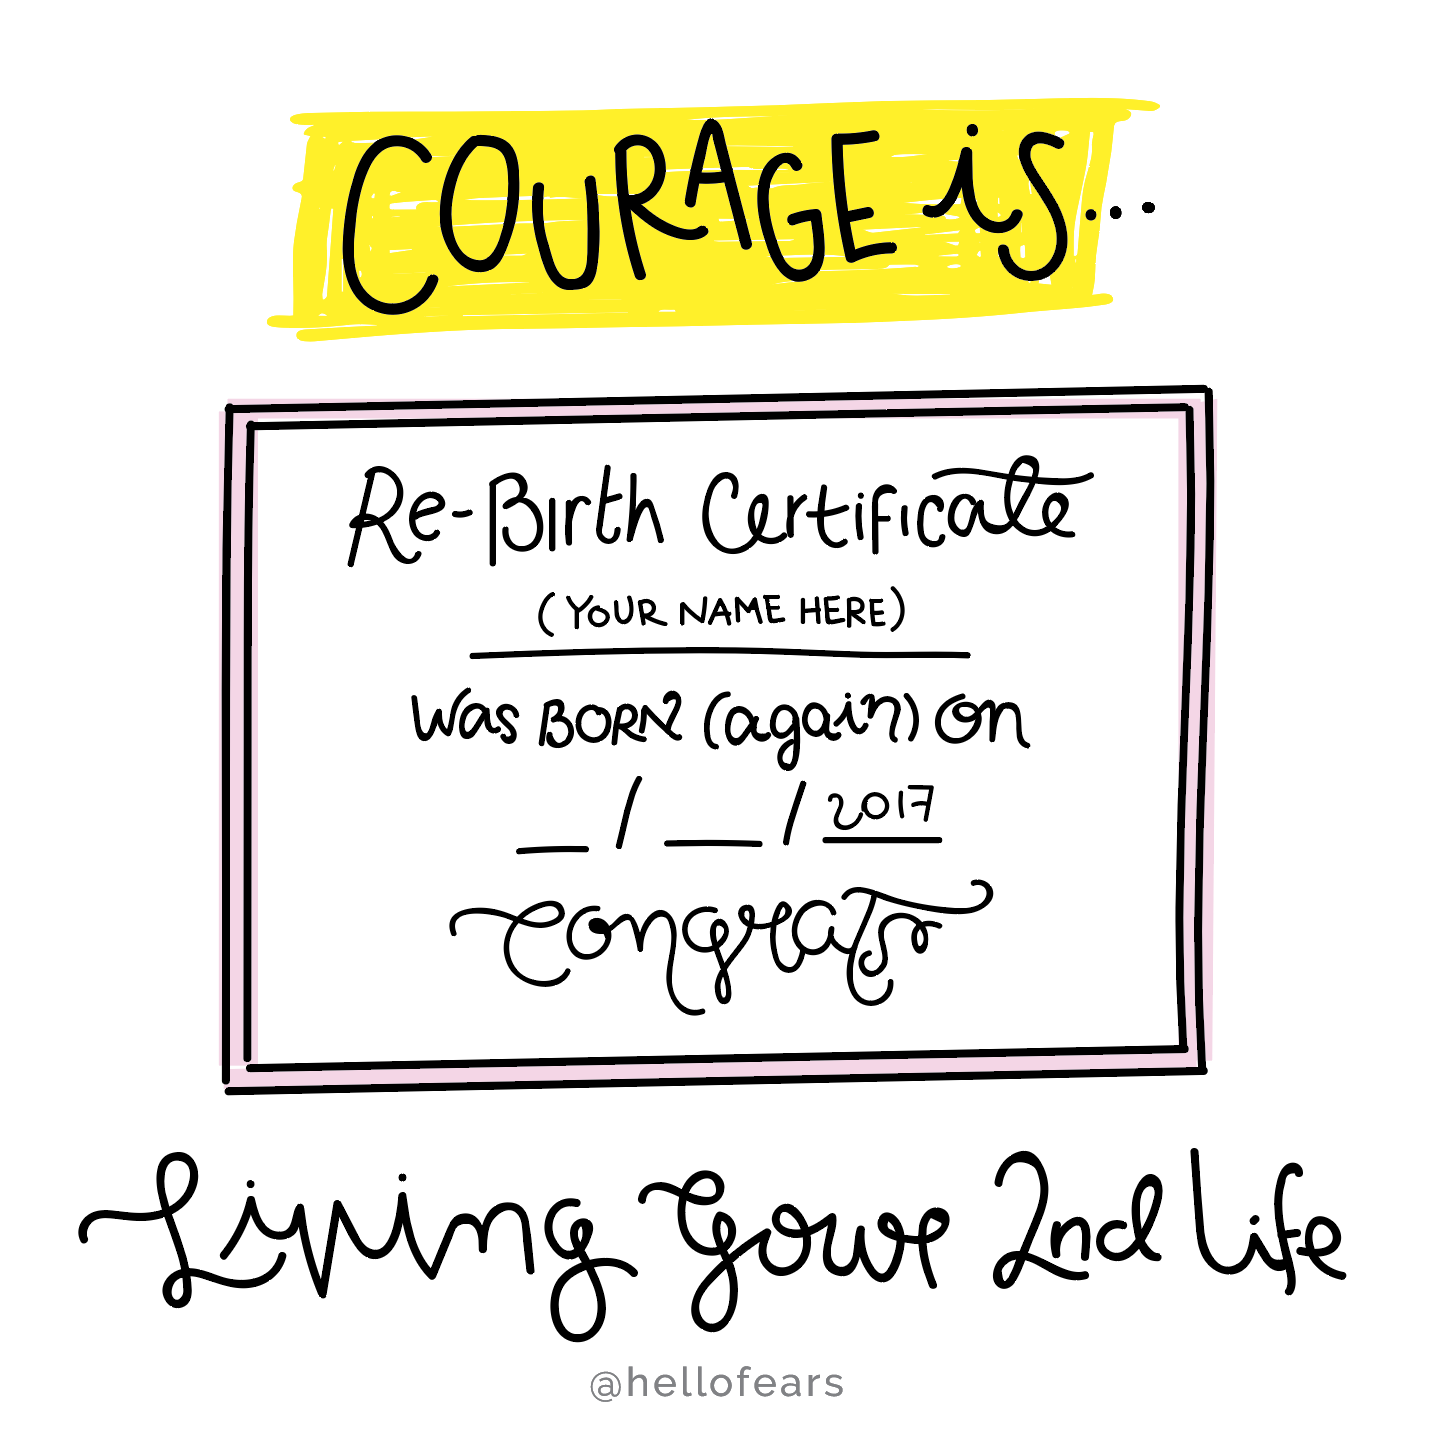 COURAGE is...
Re-Birth Certificate
(YOUR NAME HERE)
Was BORN (again) on
__ / __ / 2017
Congrats
Living Your 2nd Life
@hellofears